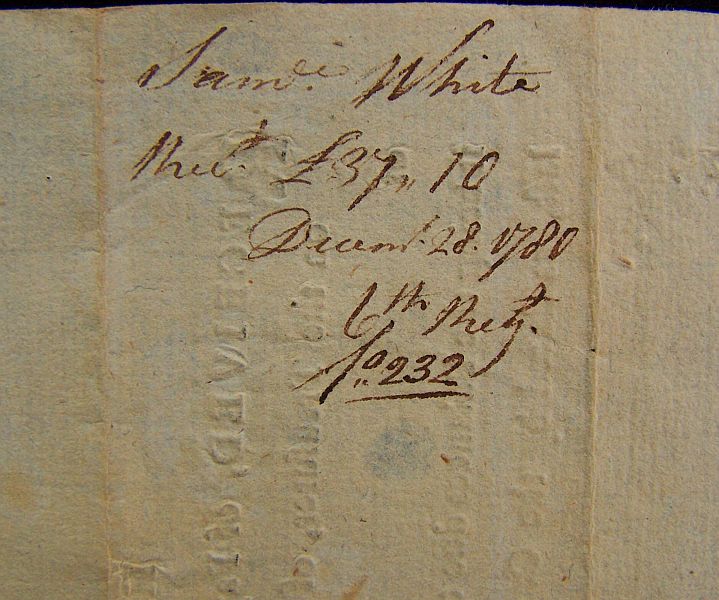 Saml. White
Rect. £37,, 10
Decemr. 28. 1780
6th Regt.
fo,, 232